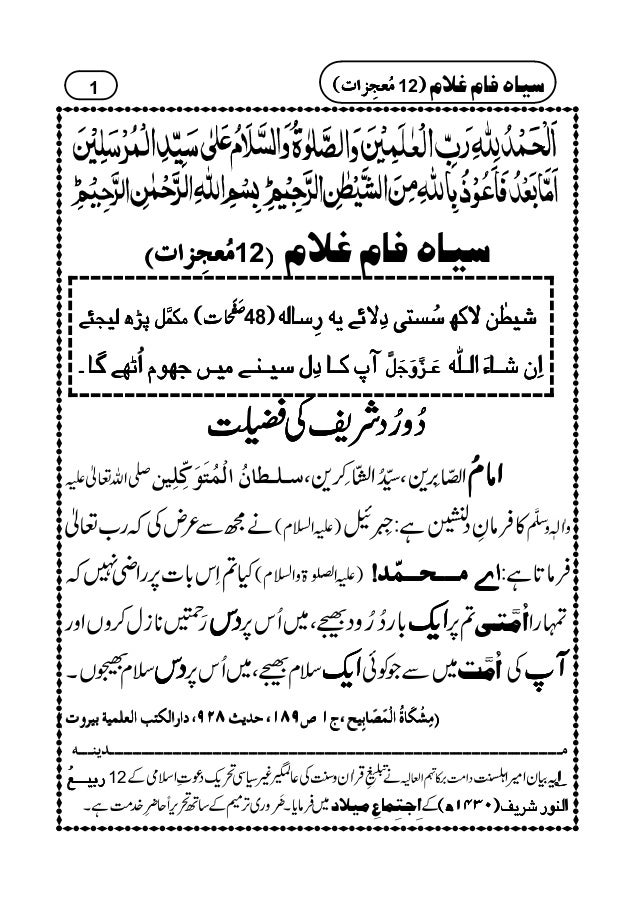 سیاہ فام غلام (12 مُعجِزات)
1
اَلْحَمْدُ لِلّٰہِ رَبِّ الْعٰلَمِیْنَ وَالصَّلٰوۃُ وَالسَّلَامُ عَلٰی سَیِّدِ الْمُرْسَلِیْنَ
اَمَّا بَعْدُ فَاَعُوْذُ بِاللّٰہِ مِنَ الشَّیْطٰنِ الرَّجِیْمِ ؕ بِسْمِ اللّٰہِ الرَّحْمٰنِ الرَّحِیْمِ ؕ
سیاہ فام غلام (12 مُعجِزات)
شیطٰن لاکھ سُستی دِلائے یہ رِسالہ (48 صَفْحات) مکمَّل پڑھ لیجئے
اِن شَاءَ اللّٰہ عَزَّوَجَلَّ آپ کا دِل سینے میں جھوم اُٹھے گا۔
دُرُود شریف کی فضیلت
امامُ الصّابِرین، سیِّدُ الشّاکِرین، سلطانُ الْمُتَوَکِّلِین صلی اللہ تعالیٰ علیہ
والہٖ وسلَّم کا فرمانِ دلنشین ہے: جبرئیل (علیہ السلام) نے مجھ سے عرض کی کہ رب تعالیٰ
فرماتا ہے: اے محمّد! (علیہ الصلوۃ والسلام) کیا تم اِس بات پر راضی نہیں کہ
تمہارا اُمَّتی تم پر ایک بار دُرُود بھیجے، میں اُس پر دس رَحمتیں نازِل کروں اور
آپ کی اُمَّت میں سے جو کوئی ایک سلام بھیجے، میں اُس پر دس سلام بھیجوں۔
(مِشْکَاۃُ الْمَصَابِیح، ج۱ ص۱۸۹، حدیث ۹۲۸، دارالکتب العلمیۃ بیروت)
مدینہ
۱ یہ بیان امیرِ اہلسنت دامت برکاتہم العالیہ نے تبلیغِ قراٰن وسنت کی عالمگیر غیر سیاسی تحریک دعوتِ اسلامی کے 12 ربیعُ
النور شریف (۱۴۳۰ھ) کے اِجتِماعِ میلاد میں فرمایا۔ ضَروری ترمیم کے ساتھ تحریراً حاضِرِ خدمت ہے۔